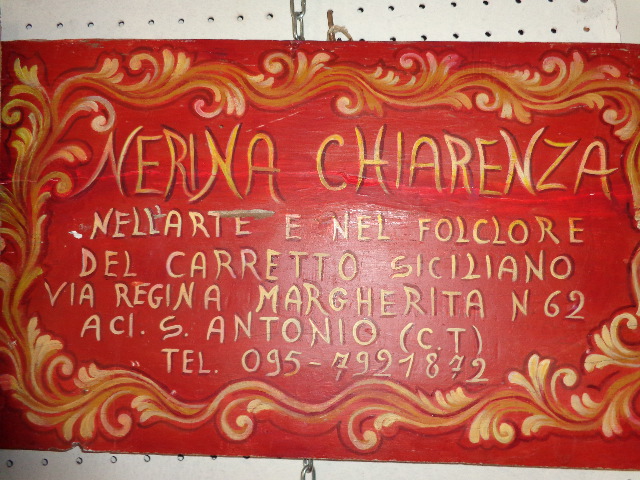 NERINA CHIARENZA
NELL'ARTE E NEL FOLCLORE
DEL CARRETTO SICILIANO
VIA REGINA MARGHERITA N 62
ACI. S. ANTONIO (C.T)
TEL. 095-7921872